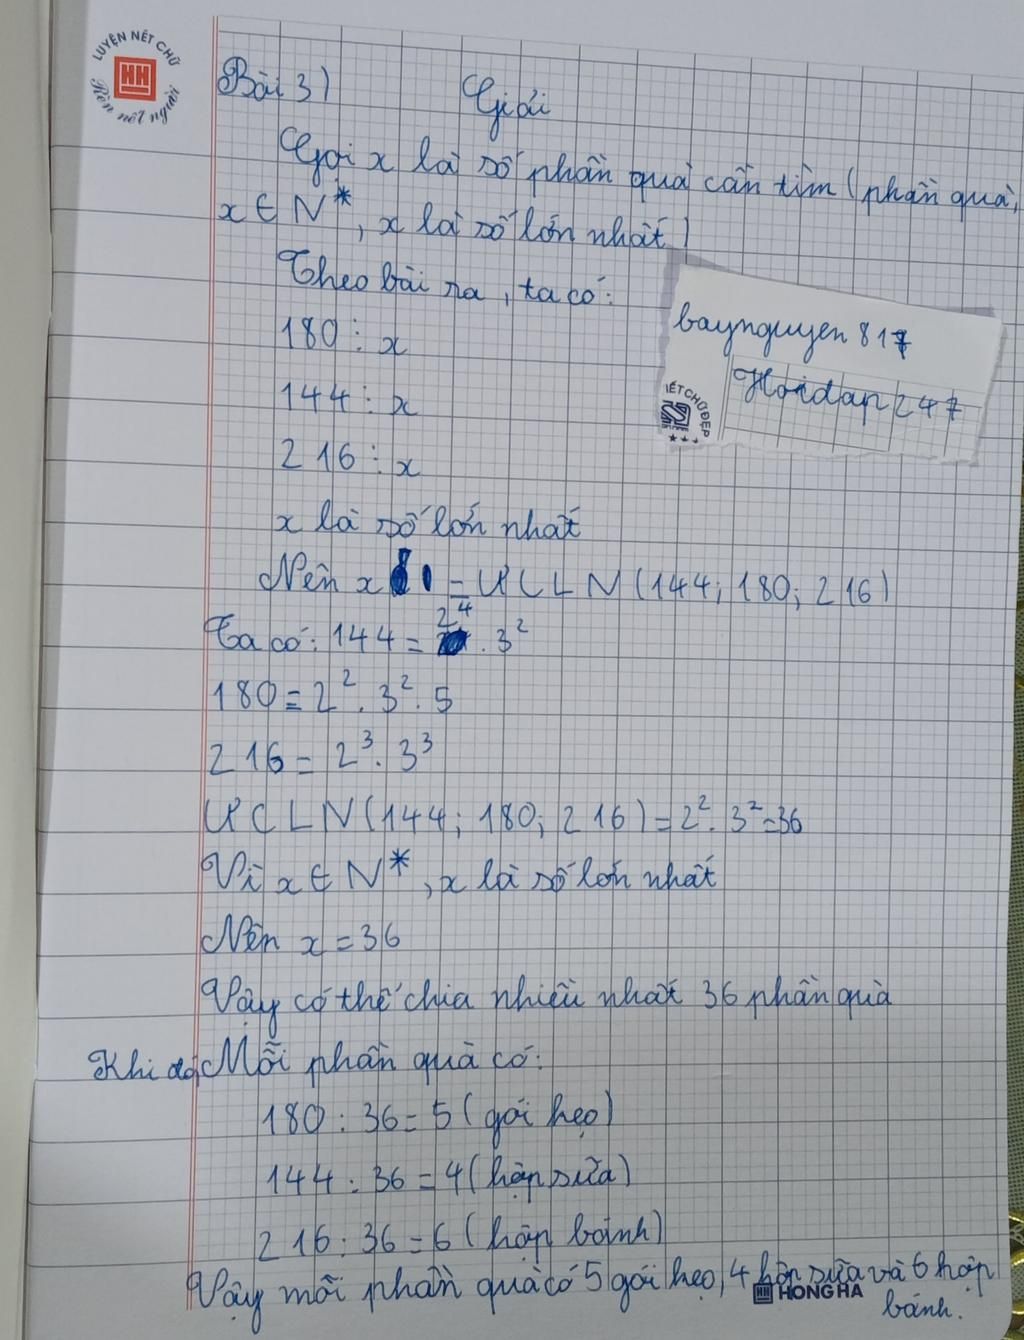 LUYỆN NÉT CHỮ
HH
Rèn nết người
Bài 3)
Giải
Gọi x là số phần quà cần tìm (phần quà,
x ∈ N*, x là số lớn nhất)
Theo bài ra, ta có:
180 ⋮ x
144 ⋮ x
216 ⋮ x
baynguyen 817
Hoidap 247
IẾT CHỮ ĐẸP
x là số lớn nhất
Nên x = ƯCLN(144; 180; 216)
Ta có: 144 = 2⁴ . 3²
180 = 2² . 3² . 5
216 = 2³ . 3³
ƯCLN(144; 180; 216) = 2² . 3² = 36
Vì x ∈ N*, x là số lớn nhất
Nên x = 36
Vậy có thể chia nhiều nhất 36 phần quà
Khi đó, Mỗi phần quà có:
180 : 36 = 5 (gói kẹo)
144 : 36 = 4 (hộp sữa)
216 : 36 = 6 (hộp bánh)
Vậy mỗi phần quà có 5 gói kẹo, 4 hộp sữa và 6 hộp
bánh.
HH HONG HA